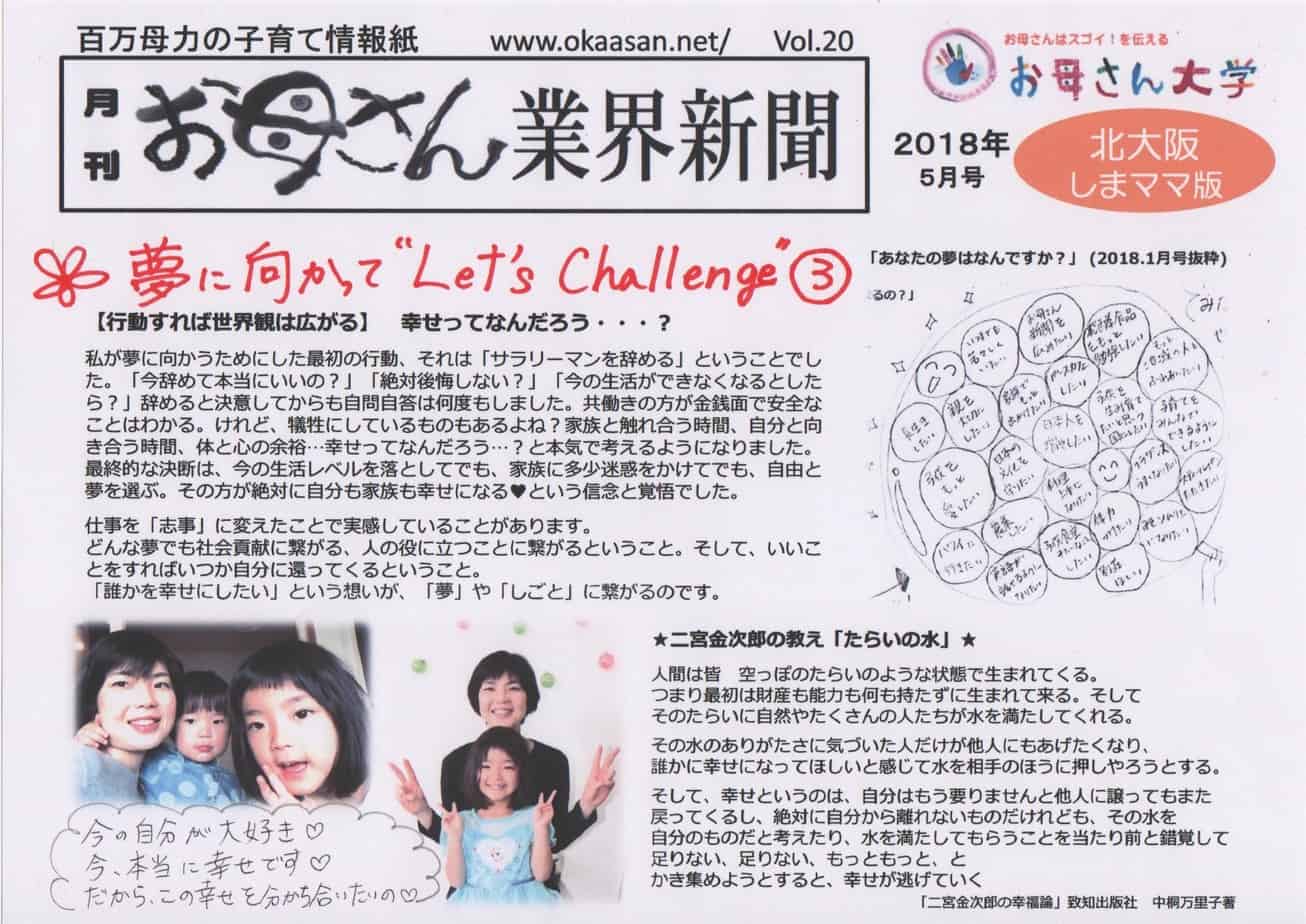 百万母力の子育て情報紙 www.okaasan.net/ Vol.20
月刊 お母さん業界新聞
お母さんはスゴイ！を伝える
お母さん大学
2018年
5月号
北大阪
しまママ版
夢に向かって“Let's Challenge”③
【行動すれば世界観は広がる】 幸せってなんだろう・・・？
私が夢に向かうためにした最初の行動、それは「サラリーマンを辞める」ということでし
た。「今辞めて本当にいいの？」「絶対後悔しない？」「今の生活ができなくなるとした
ら？」辞めると決意してからも自問自答は何度もしました。共働きの方が金銭面で安全な
ことはわかる。けれど、犠牲にしているものもあるよね？家族と触れ合う時間、自分と向
き合う時間、体と心の余裕…幸せってなんだろう…？と本気で考えるようになりました。
最終的な決断は、今の生活レベルを落としてでも、家族に多少迷惑をかけてでも、自由と
夢を選ぶ。その方が絶対に自分も家族も幸せになる♥という信念と覚悟でした。
仕事を「志事」に変えたことで実感していることがあります。
どんな夢でも社会貢献に繋がる、人の役に立つことに繋がるということ。そして、いいこ
とをすればいつか自分に還ってくるということ。
「誰かを幸せにしたい」という想いが、「夢」や「しごと」に繋がるのです。
「あなたの夢はなんですか？」（2018.1月号抜粋）
るの？」
いつまでも
若々しく
いたい
お母さん
新聞を
広めたい
長生き
したい
親を
大切に
したい
日本人を
子供を
もっと
日本の
文化を
守りたい
ハワイに
行きたい
体力
今の自分が大好き♡
今、本当に幸せです♡
だから、この幸せを分かち合いたいの♡
★二宮金次郎の教え「たらいの水」★
人間は皆 空っぽのたらいのような状態で生まれてくる。
つまり最初は財産も能力も何も持たずに生まれて来る。そして
そのたらいに自然やたくさんの人たちが水を満たしてくれる。
その水のありがたさに気づいた人だけが他人にもあげたくなり、
誰かに幸せになってほしいと感じて水を相手のほうに押しやろうとする。
そして、幸せというのは、自分はもう要りませんと他人に譲ってもまた
戻ってくるし、絶対に自分から離れないものだけれども、その水を
自分のものだと考えたり、水を満たしてもらうことを当たり前と錯覚して
足りない、足りない、もっともっと、と
かき集めようとすると、幸せが逃げていく
「二宮金次郎の幸福論」致知出版社 中桐万里子著